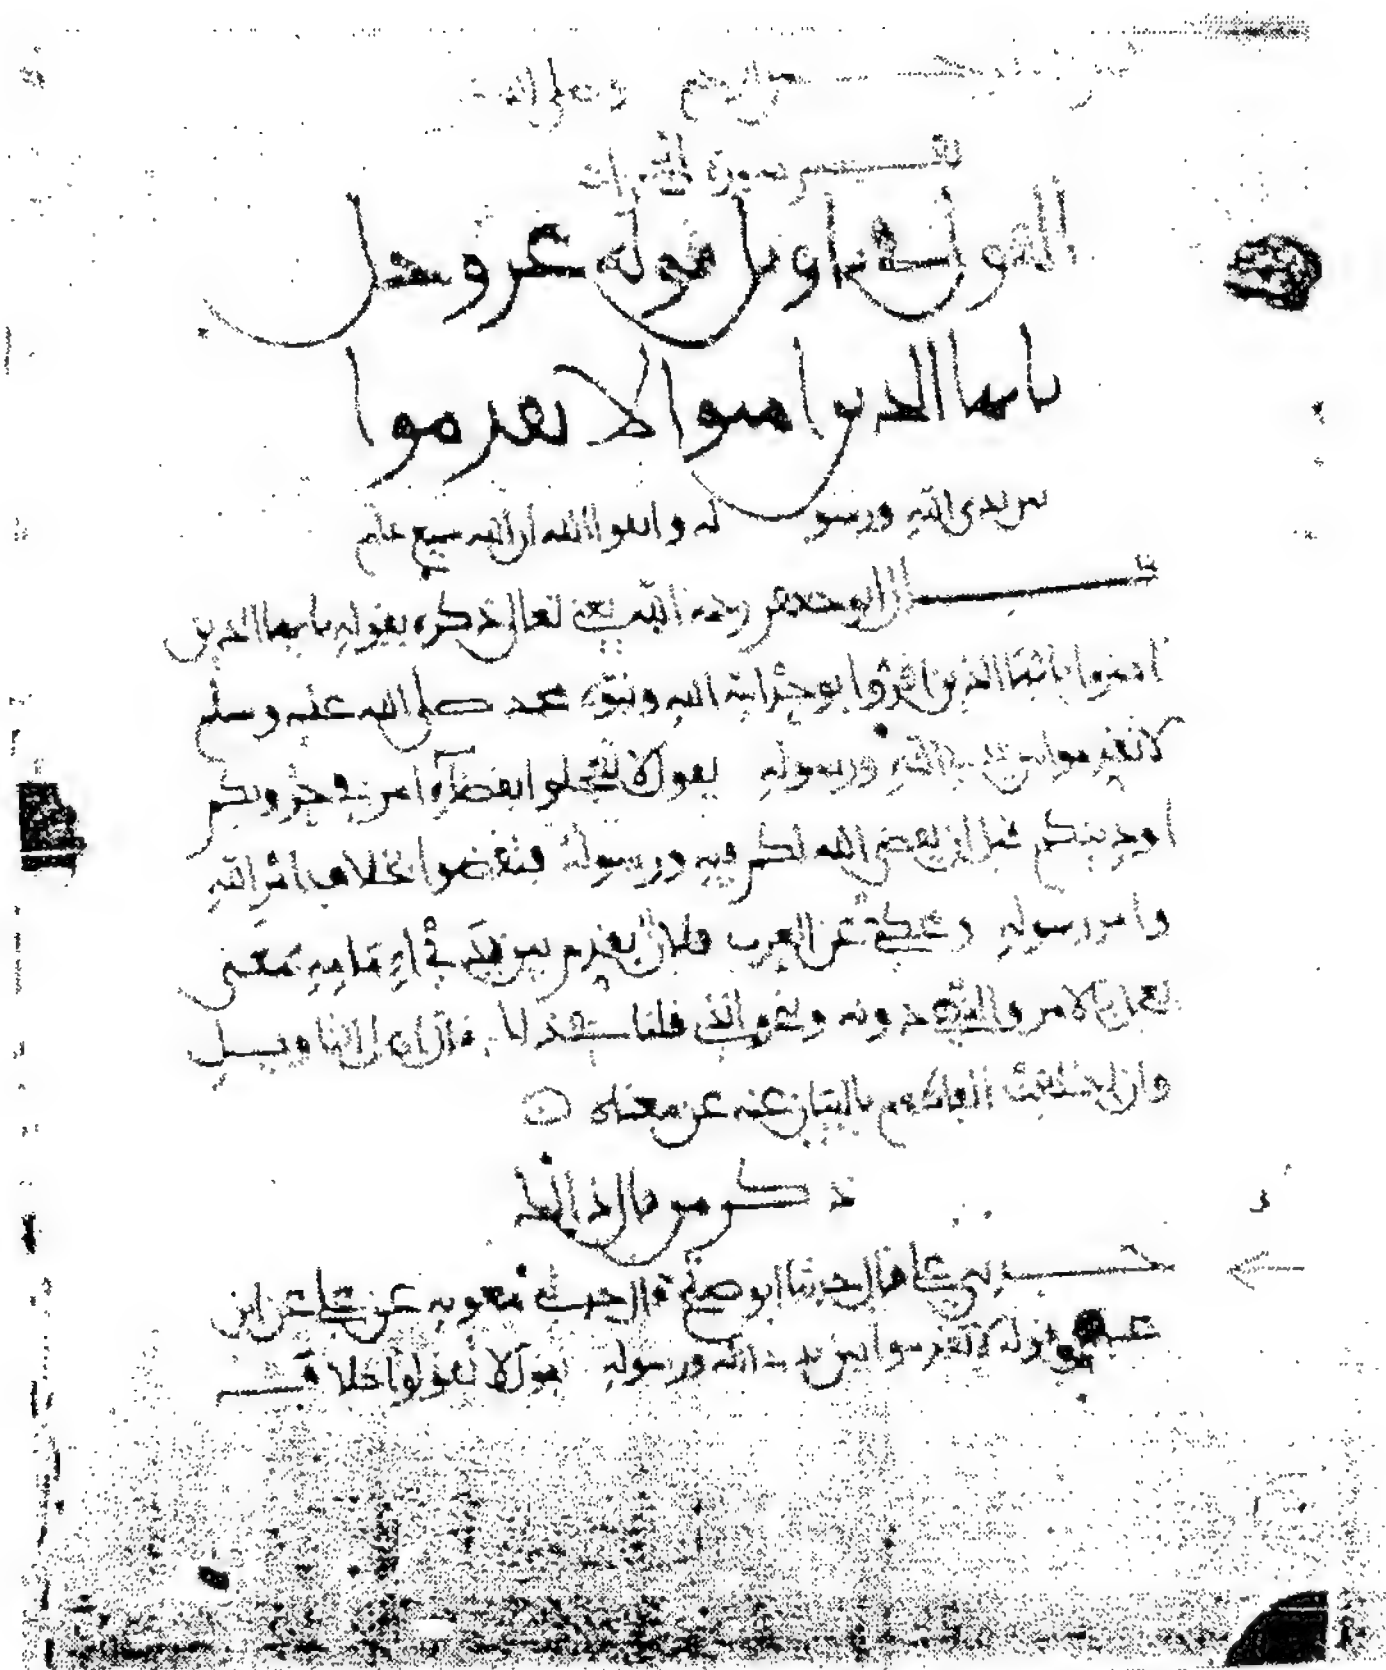 بسم الله الرحمن الرحيم وصلى الله
تفسير سورة الحجرات
القول في تاويل قوله عز وجل
يايها الذين امنوا لا تقدموا
بين يدي الله ورسوله واتقوا الله ان الله سميع عليم
قال ابو جعفر رحمه الله يعني تعالى ذكره بقوله يايها الذين
امنوا يا ايها الذين اقروا بوحدانية الله ونبوة محمد صلى الله عليه وسلم
لا تقدموا بين يدي الله ورسوله يقول لا تعجلوا بقضآء امر في حروبكم
او دينكم قبل ان يقضي الله لكم فيه ورسوله فتقضوا بخلاف امر الله
وامر رسوله وحكي عن العرب فلان يقدم بين يدي امامه بمعنى
يعجل بالامر والنهي دونه وبنحو الذي قلنا في ذلك قال اهل التاويل
وان اختلفت الفاظهم بالبيان عنه عن معناه
ذكر من قال ذلك
حدثني علي قال حدثنا ابو صلح قال حدثني معويه عن علي عن ابن
عباس قوله لا تقدموا بين يدي الله ورسوله يقول لا تقولوا خلاف